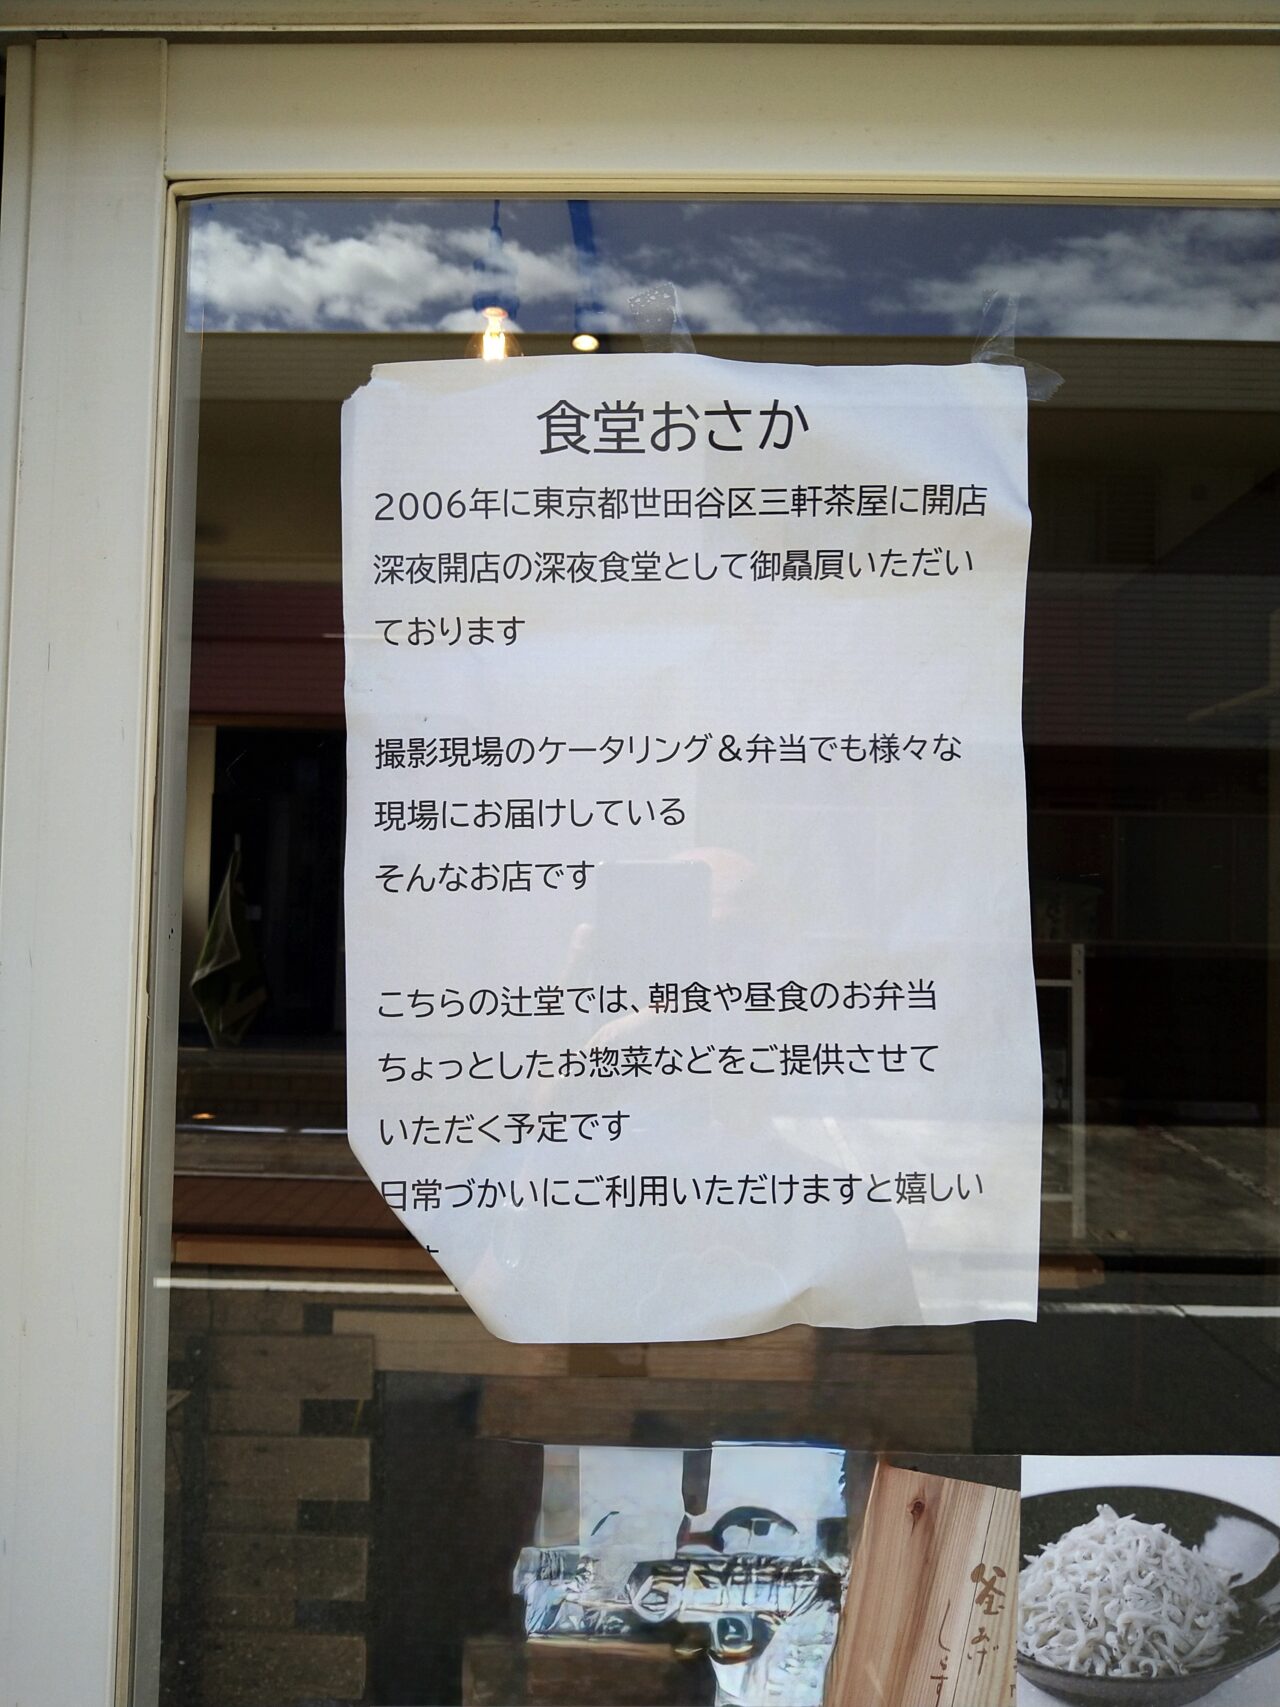 食堂おさか
2006年に東京都世田谷区三軒茶屋に開店
深夜開店の深夜食堂として御贔屓いただい
ております
撮影現場のケータリング＆弁当でも様々な
現場にお届けしている
そんなお店です
こちらの辻堂では、朝食や昼食のお弁当
ちょっとしたお惣菜などをご提供させて
いただく予定です
日常づかいにご利用いただけますと嬉しい
釜あげ
しらす